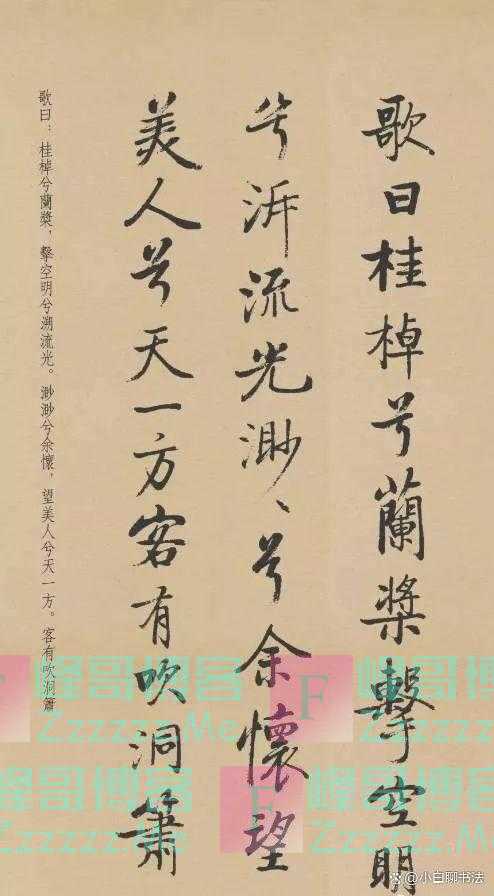 歌曰桂棹兮蘭槳擊空明
兮泝流光渺、兮余懷望
美人兮天一方客有吹洞簫
歌曰：桂棹兮蘭槳，擊空明兮溯流光。渺渺兮余懷，望美人兮天一方。客有吹洞簫
峰哥博客
Zzzzzz.Me
F
峰哥博客
Zzzzzz.Me
F
峰哥博客
Zzzzzz.Me
峰哥博客
Zzzzzz.Me
@小白聊书法